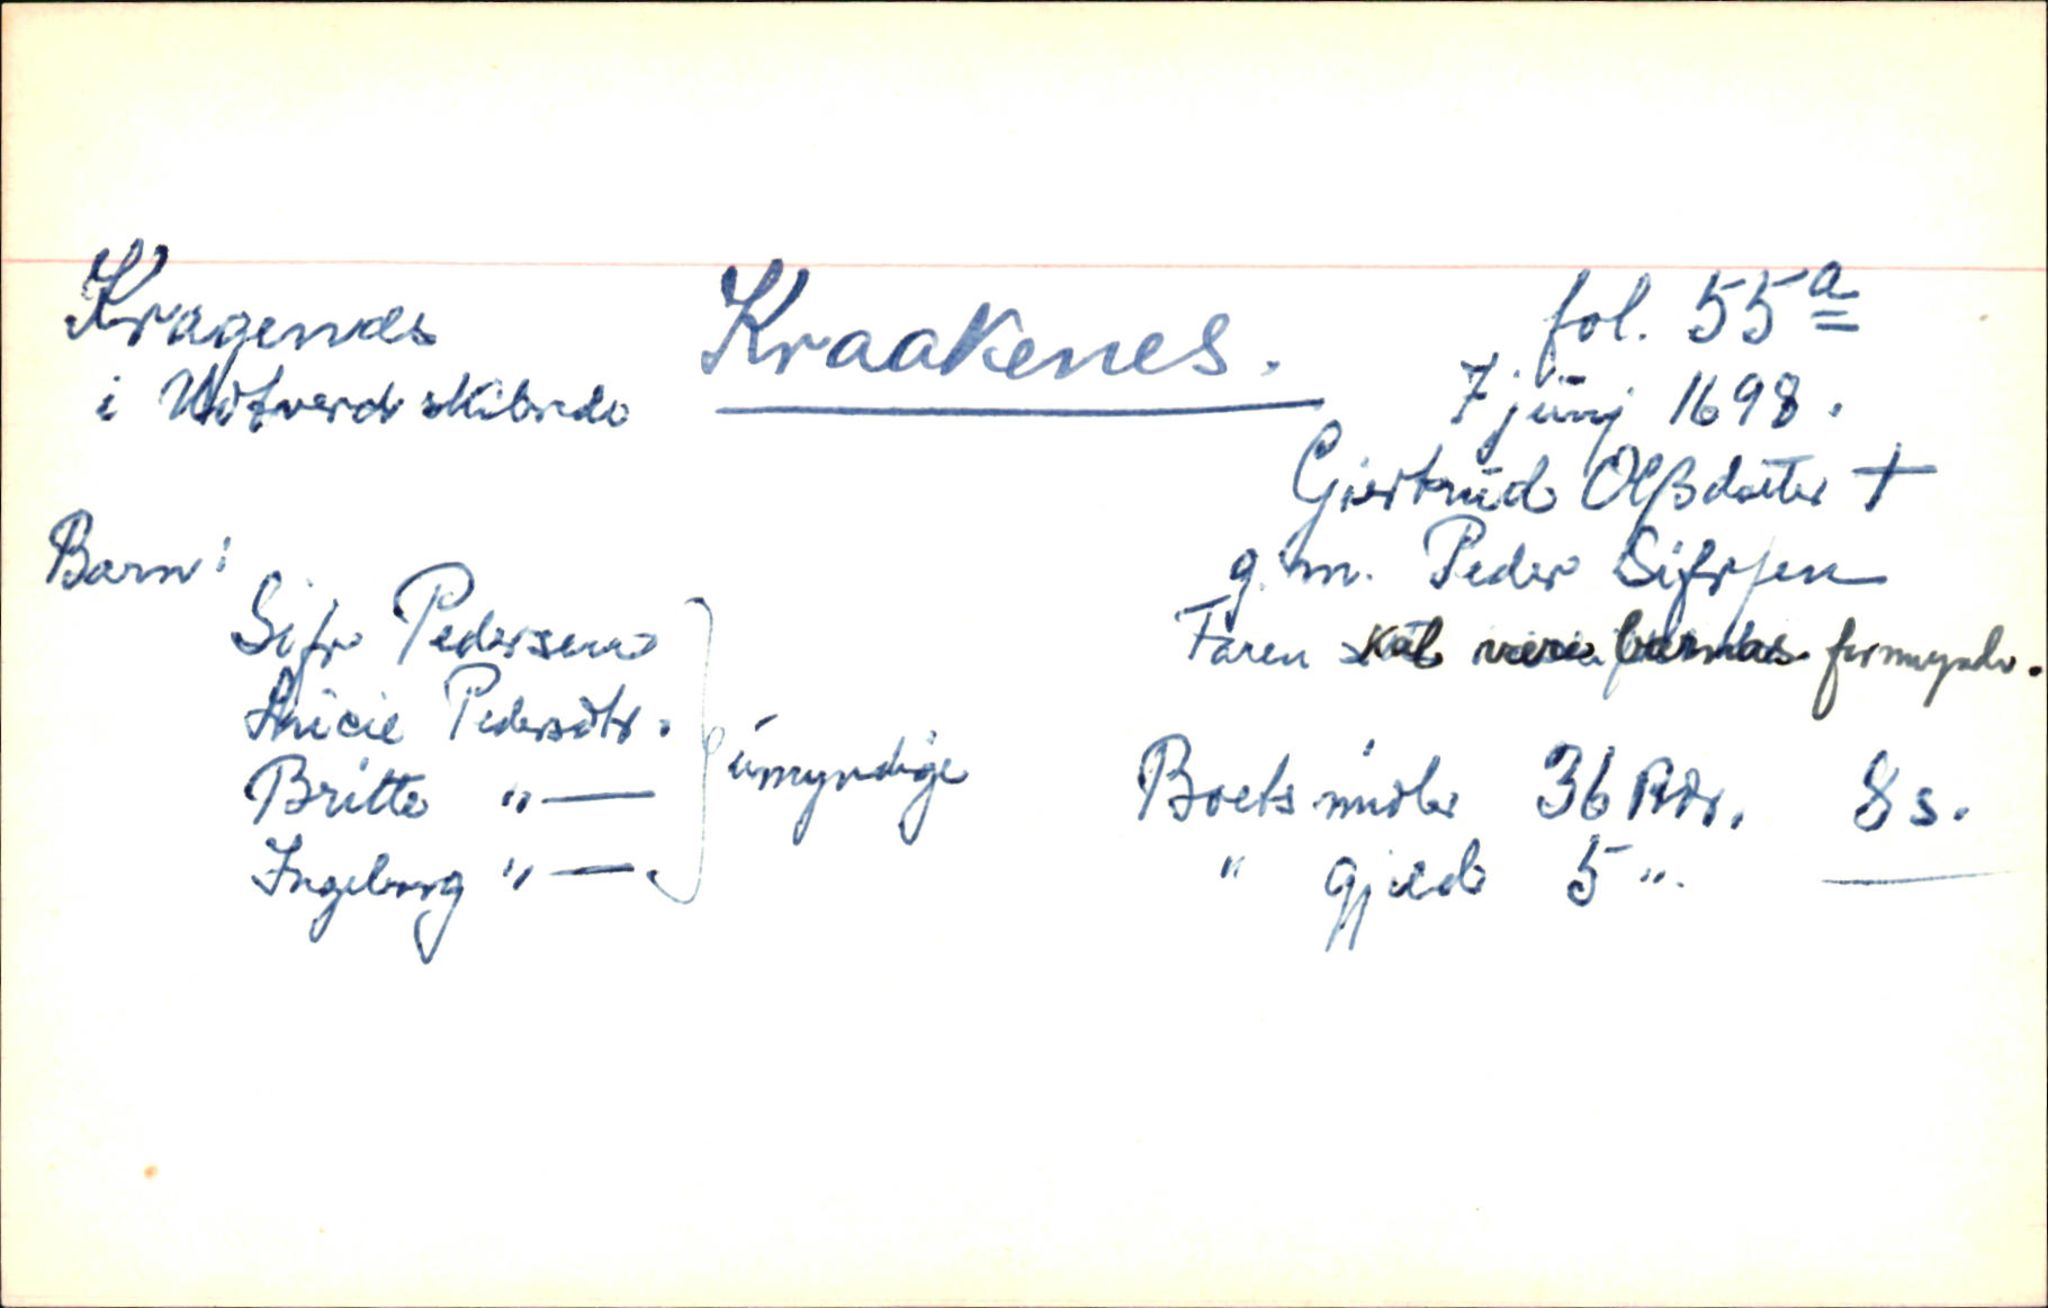 Kragenæs
i Utverd skibrede
Kraakenes.
fol. 55a
7 junj 1698.
Giertrud Olßdatter +
g. m. Peder Sifrsen
Faren skal være barnas formynder.
Barn:
Sifr Pedersen
Pedersdtr.
Britte " —
Ingeborg " —
umyndige
Boets midler 36 Rdr. 8 s.
" gjeld 5 ". —